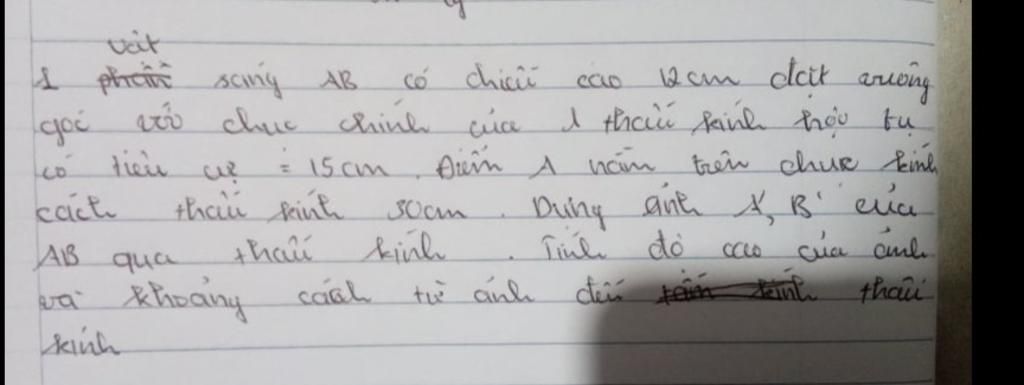 vật
1 sáng AB có chiều cao 12cm đặt vuông
góc với chục chính của 1 thấu kính hội tụ
có tiêu cự = 15cm. Điểm A nằm trên chục kính
cách thấu kính 30cm. Dựng ảnh A', B' của
AB qua thấu kính. Tính độ cao của ảnh
và khoảng cách từ ảnh đến thấu
kính